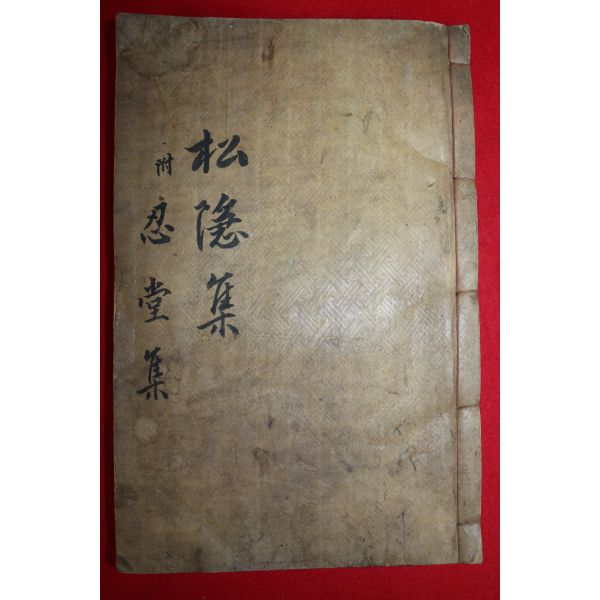 松隱集
附 忍堂集